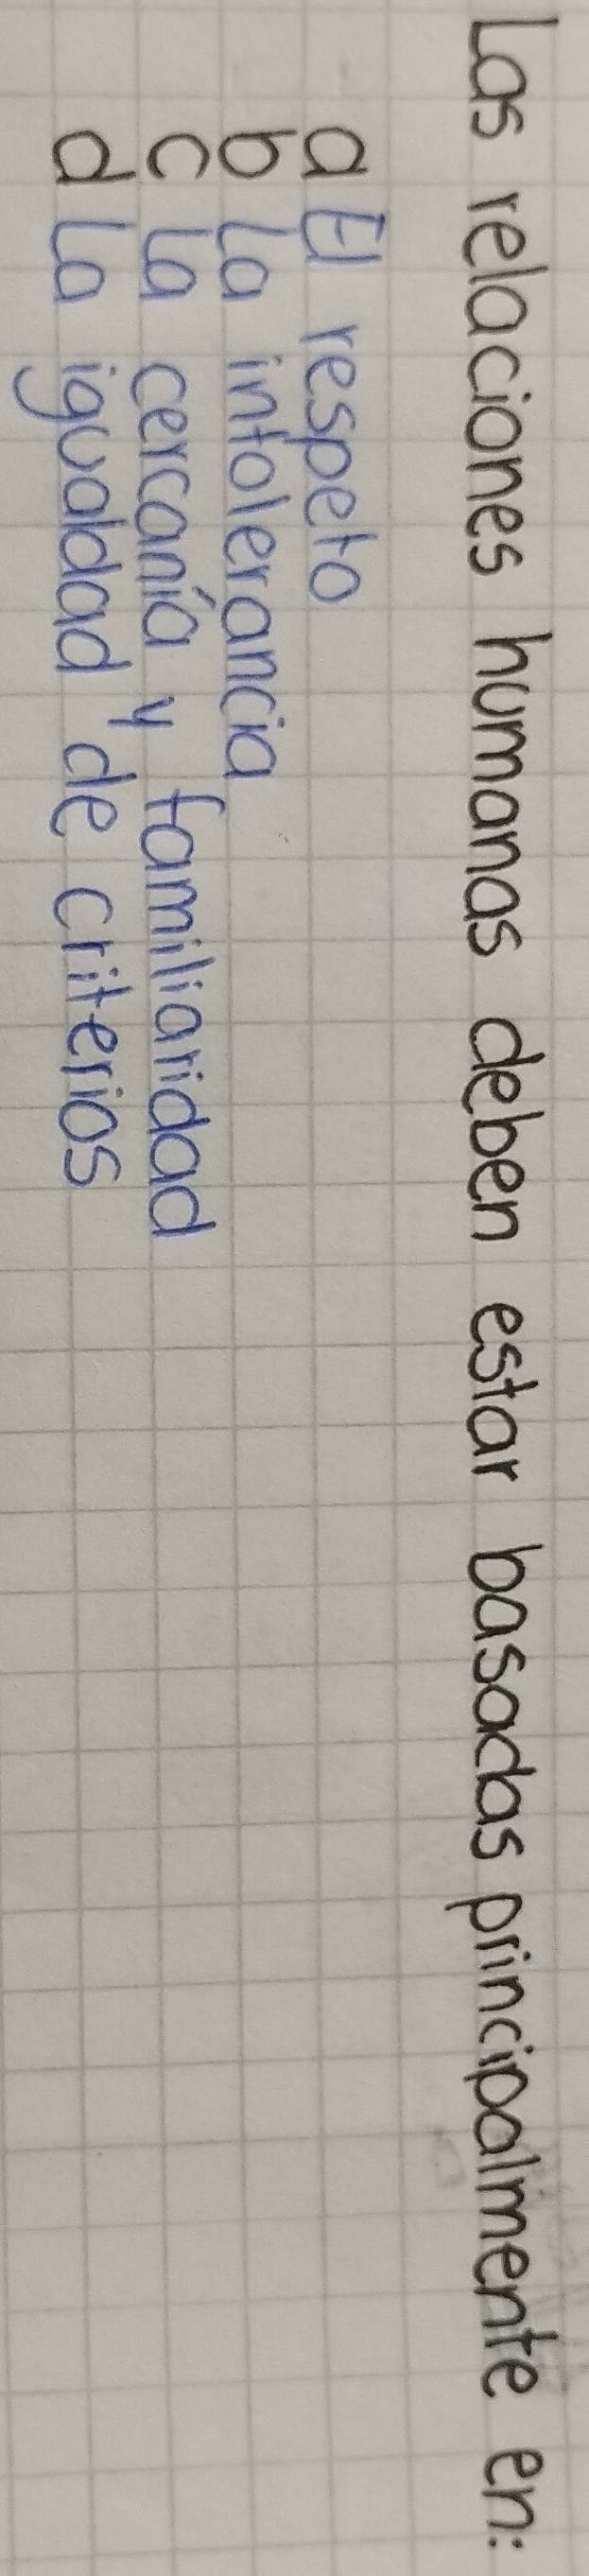 Las relaciones humanas deben estar basadas principalmente en:
a El respeto
b La intolerancia
c La cercanía y familiaridad
d La igualdad de criterios